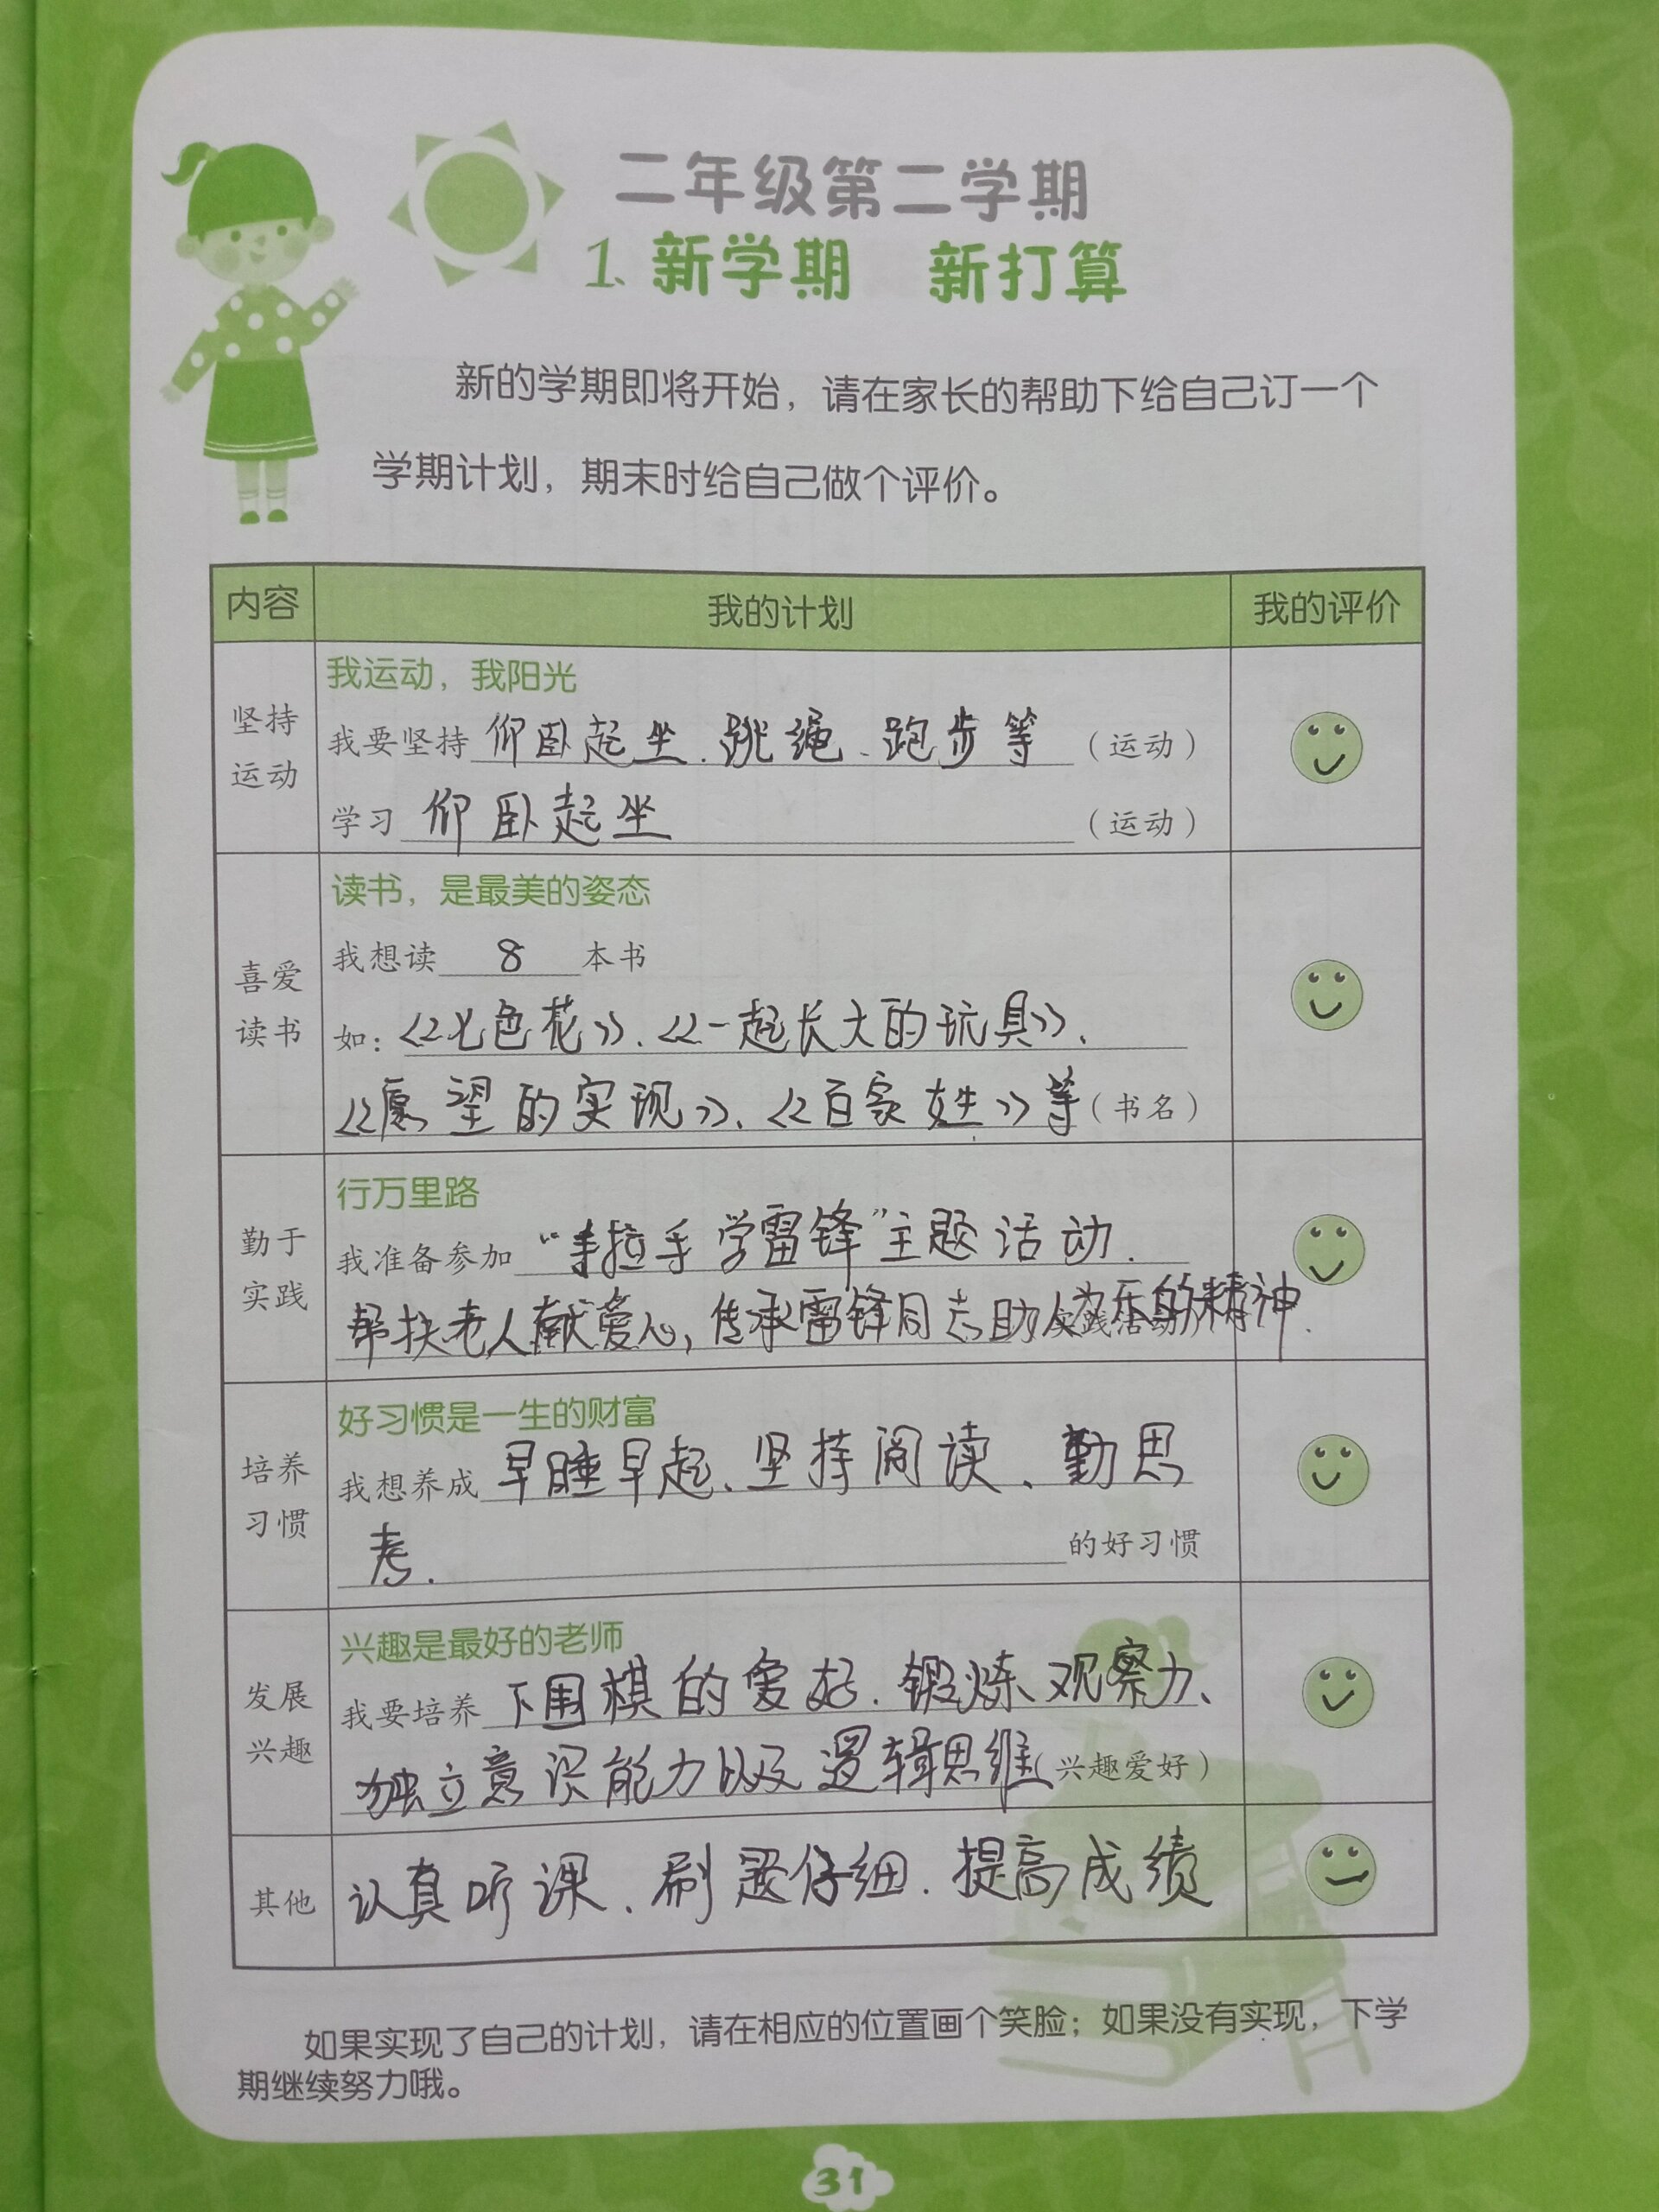 二年级第二学期
1.新学期 新打算
新的学期即将开始，请在家长的帮助下给自己订一个
学期计划，期末时给自己做个评价。
内容 我的计划 我的评价
坚持
运动
我运动，我阳光
我要坚持仰卧起坐、跳绳、跑步等（运动）
学习仰卧起坐（运动）
喜爱
读书
读书，是最美的姿态
我想读8本书
如：《七色花》、《一起长大的玩具》、
《愿望的实现》、《百家姓》等（书名）
勤于
实践
行万里路
我准备参加“手拉手学雷锋”主题活动.
帮扶老人献爱心，传承雷锋同志助人为乐的精神.
实践活动
培养
习惯
好习惯是一生的财富
我想养成早睡早起、坚持阅读、勤思
考.的好习惯
发展
兴趣
兴趣是最好的老师
我要培养下围棋的爱好.锻炼观察力、
独立意识能力以及逻辑思维（兴趣爱好）
其他
认真听课、刷题仔细.提高成绩
如果实现了自己的计划，请在相应的位置画个笑脸；如果没有实现，下学
期继续努力哦。
31